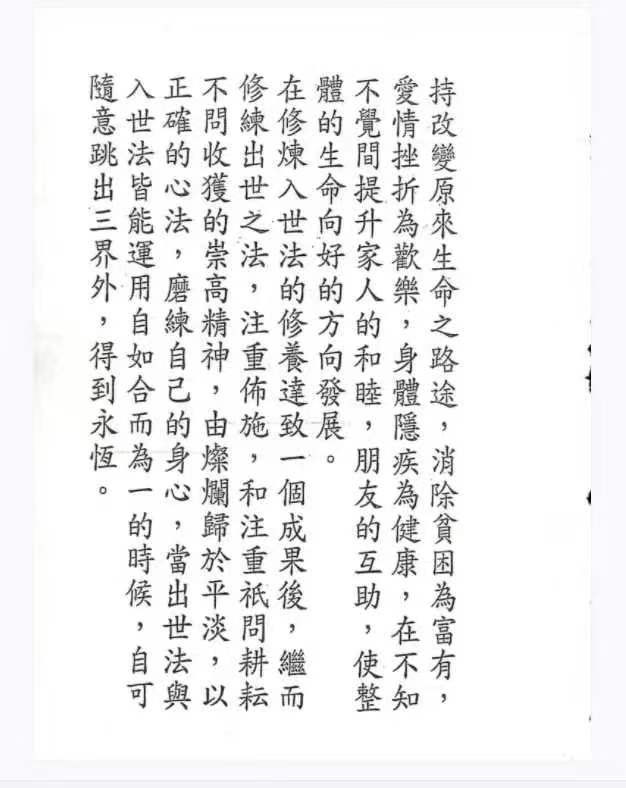 持改變原來生命之路途，消除貧困為富有，
愛情挫折為歡樂，身體隱疾為健康，在不知
不覺間提升家人的和睦，朋友的互助，使整
體的生命向好的方向發展。
在修煉入世法的修養達致一個成果後，繼而
修練出世之法，注重佈施，和注重祇問耕耘
不問收獲的崇高精神，由燦爛歸於平淡，以
正確的心法，磨練自己的身心，當出世法與
入世法皆能運用自如合而為一的時候，自可
隨意跳出三界外，得到永恆。